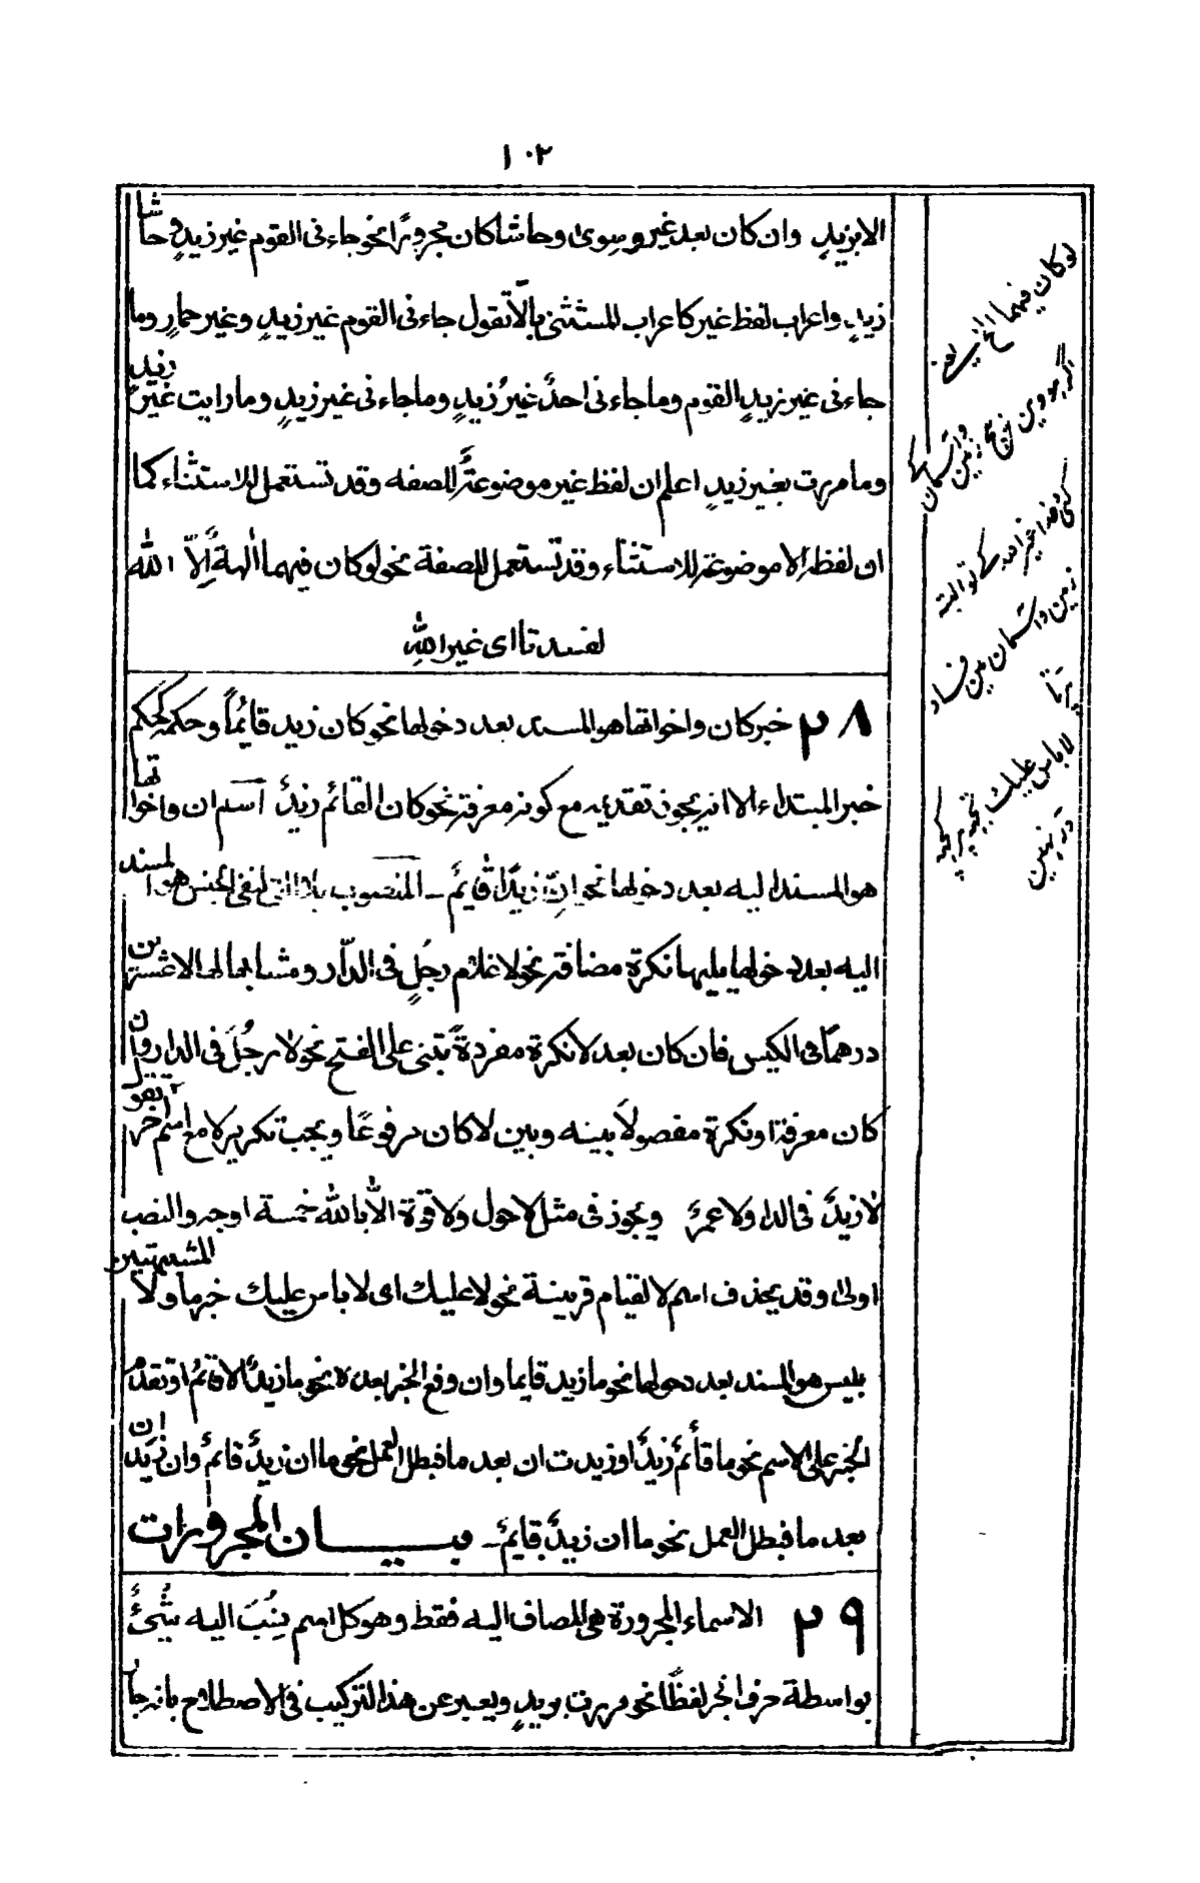 ١٠٢
الابزيدٍ وان كان بعد غير وسوىٰ وحاشا كان مجرورًا نحو جاءنى القوم غير زيدٍ وحاشا
زيدٍ واعراب لفظ غير كاعراب المستثنى بالّا تقول جاءنى القوم غير زيدٍ وغير حمارٍ وما
جاءنى غير زيدٍ القوم وما جاءنى احدٌ غيرُ زيدٍ وما جاءنى غير زيدٍ وما رايت غير زيدٍ
وما مررت بغير زيدٍ اعلم ان لفظ غير موضوعةٌ للصفه وقد تستعمل للاستثناء كما
ان لفظه الا موضوعة للاستثناء وقد تستعمل للصفة نحو لوكان فيهما اٰلهةٌ اِلّا الله
لفسدتا اى غير اللهِ
٢٨ خبر كان واخواتها هو المسند بعد دخولها نحو كان زيد قايمًا وحكمه كحكم
خبر المبتداء الا انه يجوز تقديمه مع كونه معرفة نحو كان القائم زيدٌ اسم ان واخواتها
هو المسند اليه بعد دخولها نحو اِنّ زيدًا قايمٌ ـ المنصوب بلا التى لنفى الجنس هو المسند
اليه بعد دخولها يليها نكرة مضافة نحو لا غلام رجُلٍ فى الدّار ومشابها لها لا عشرين
درهمًا فى الكيس فان كان بعد لا نكرة مفردةً تبنى على الفتح نحو لا رجُلَ فى الدار وان
كان معرفة او نكرة مفصولاً بينه وبين لا كان مرفوعًا ويجب تكريره لا مع اسم آخر تقول
لا زيدٌ فى الدار ولا عمرٌ ويجوز فى مثل لاحول ولا قوة الا بالله خمسة اوجه والنصب
اولى وقد يحذف اسم لا لقيام قرينة نحو لا عليك اى لا باس عليك خبر ما ولا المشبهتين
بليس هو المسند بعد دخولها نحو ما زيد قايما وان وقع الخبر بعد الا نحو ما زيدٌ الا قائمٌ او تقدم
الخبر على الاسم نحو ما قائمٌ زيدٌ او زيدت ان بعد ما فبطل العمل نحو ما ان زيدٌ قائمٌ وان زيدت ان
بعد ما فبطل العمل نحو ما ان زيدٌ قايمٌ ـ بيـــان المجرورات
٢٩ الاسماء المجرورة هى المضاف اليه فقط وهو كل اسم نُسِبَ اليه شَئٌ
بواسطة حرف الجر لفظًا نحو مررت بزيدٍ ويعبر عن هذا التركيب فى الاصطلاح بانه جار
لوكان فيهما الخ
زمين واسمان
سواى خدا غير اللہ كے تو البتہ
زمين واسمان مين فساد
پڑتا
لا باس عليك
تجھ پر كچھ
ڈر نہين